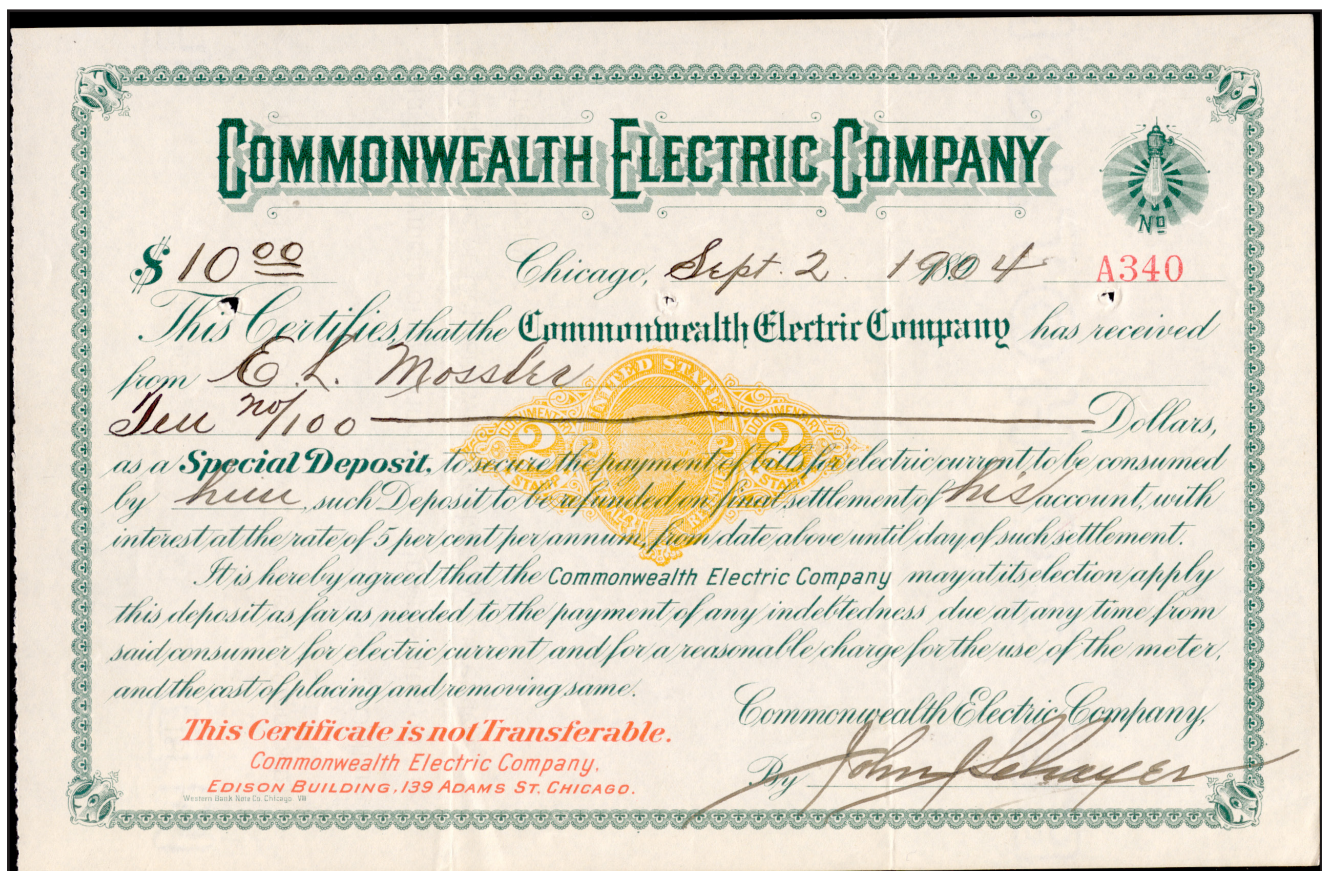 COMMONWEALTH ELECTRIC COMPANY
No
$ 10 00 Chicago, Sept. 2. 1904 A340
This Certifies, that the Commonwealth Electric Company has received
from E. L. Mossler
Ten no/100 Dollars,
as a Special Deposit, to secure the payment of bills for electric current to be consumed
by him, such Deposit to be refunded on final settlement of his account, with
interest at the rate of 5 per cent per annum, from date above until day of such settlement.
It is hereby agreed that the Commonwealth Electric Company may at its election apply
this deposit as far as needed to the payment of any indebtedness due at any time from
said consumer for electric current and for a reasonable charge for the use of the meter,
and the cost of placing and removing same.
Commonwealth Electric Company,
This Certificate is not Transferable.
Commonwealth Electric Company,
By John J Schayer
EDISON BUILDING, 139 ADAMS ST. CHICAGO.
Western Bank Note Co. Chicago
UNITED STATES
DOCUMENTARY
2 2
2 2
DOCUMENTARY
STAMP
STAMP